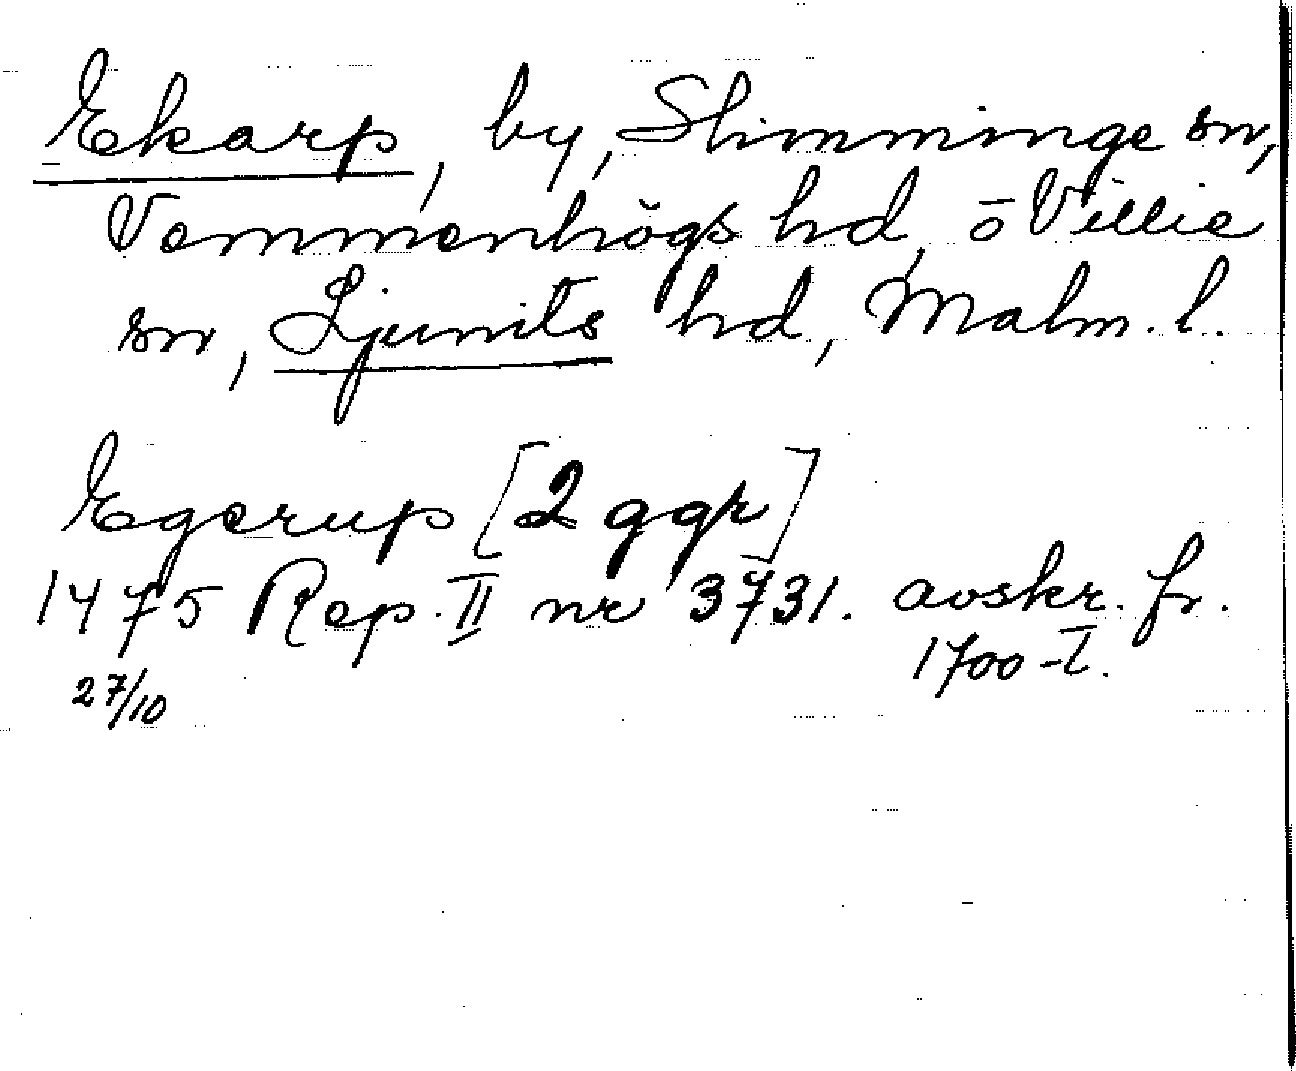 Ekarp, by, Slimminge sn,
Vemmenhögs hd, o Villie
sn, Ljunits hd, Malm. l.
Egerup [2 ggr]
1475 Rep. II nr 3731. avskr. fr.
1700-T.
27/10